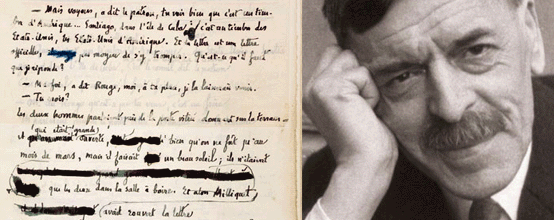 — Mais voyons, a dit le patron, tu vois bien que c'est un tim-
bre d'Amérique... Santiago, dans l'île de Cuba; c'est un timbre des
Etats-Unis, les Etats-Unis d'Amérique. Et la lettre est une lettre
officielle, pas moyen de s'y tromper. Qu'est-ce qu'il faut
que je réponde?
— Ma foi, a dit Rouge, moi, à ta place, je la laisserais venir.
— Tu crois?
Les deux hommes près de la porte vitrée donnant sur la terrasse
(qui était grande)
et ouverte, bien qu'on ne fût qu'au
mois de mars, mais il faisait un beau soleil; ils n'étaient
que les deux dans la salle à boire. Et alors Milliquet
avait rouvert la lettre